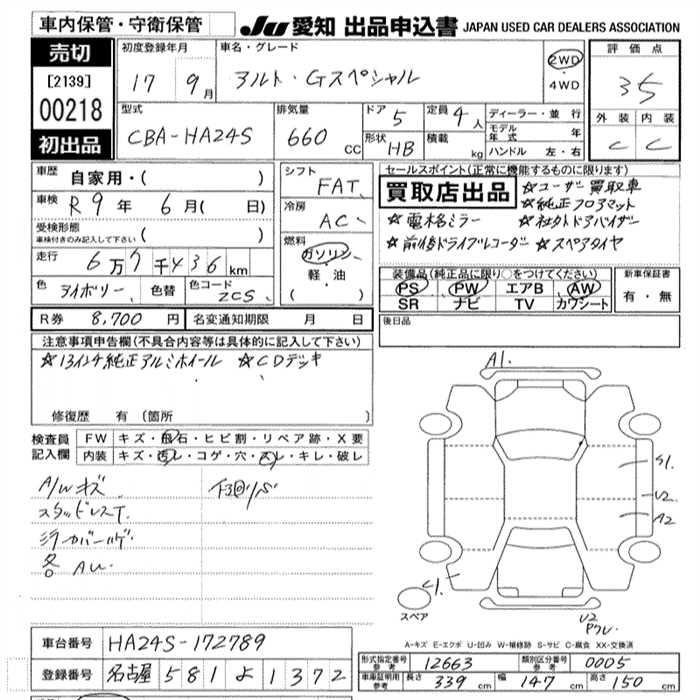 車内保管・守衛保管
JU 愛知 出品申込書 JAPAN USED CAR DEALERS ASSOCIATION
売切
[2139]
00218
初出品
初度登録年月
17 9月
車名・グレード
アルト・Gスペシャル
2WD
4WD
評価点
35
外装 内装
C C
型式
CBA-HA24S
排気量
660 CC
ドア 5
形状 HB
定員 4人
積載 kg
ディーラー・並行
モデル年式 年
ハンドル 左・右
車歴 自家用・( )
車検 R9年6月( 日)
受検形態
車検付きのみ記入して下さい ( )
走行 6万7千436km
色 アイボリー 色替 色コード ZCS
シフト FAT
冷房 AC
燃料
ガソリン
軽・油
( )
セールスポイント(正常に機能するものに限ります)
買取店出品 ☆ユーザー買取車
☆純正フロアマット
☆電格ミラー ☆社外ドアバイザー
☆前後ドライブレコーダー ☆スペアタイヤ
装備品(純正品に限り○をつけてください)
PS PW エアB AW
SR ナビ TV カワシート
新車保証書
有・無
R券 8,700円 名変通知期限 月 日
後日品
注意事項申告欄(不具合内容等は具体的に記入して下さい)
☆13インチ純正アルミホイール ☆CDデッキ
修復歴 有(箇所 )
検査員記入欄
FW キズ・飛石・ヒビ割・リペア跡・X要
内装 キズ・汚レ・コゲ・穴・スレ・キレ・破レ
A/Wキズ 下廻りS
スタッドレスT
各AU
A1.
S1
U2
A2
U2
スペア
A-キズ E-エクボ U-凹み W-補修跡 S-サビ C-腐食 XX-交換済
車台番号 HA24S-172789
登録番号 名古屋 581 よ 1372
形式指定番号 参考 12663 類別区分番号 参考 0005
車庫証明用 参考 長さ 339cm 幅 147cm 高さ 150cm